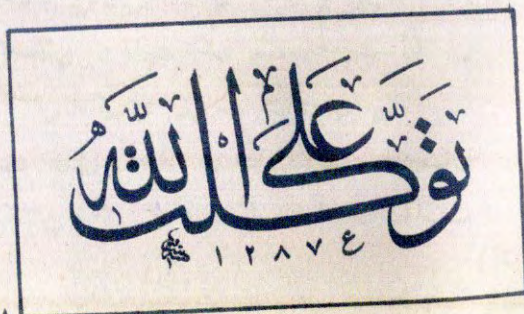 توكلت على الله
ع ١٢٨٧